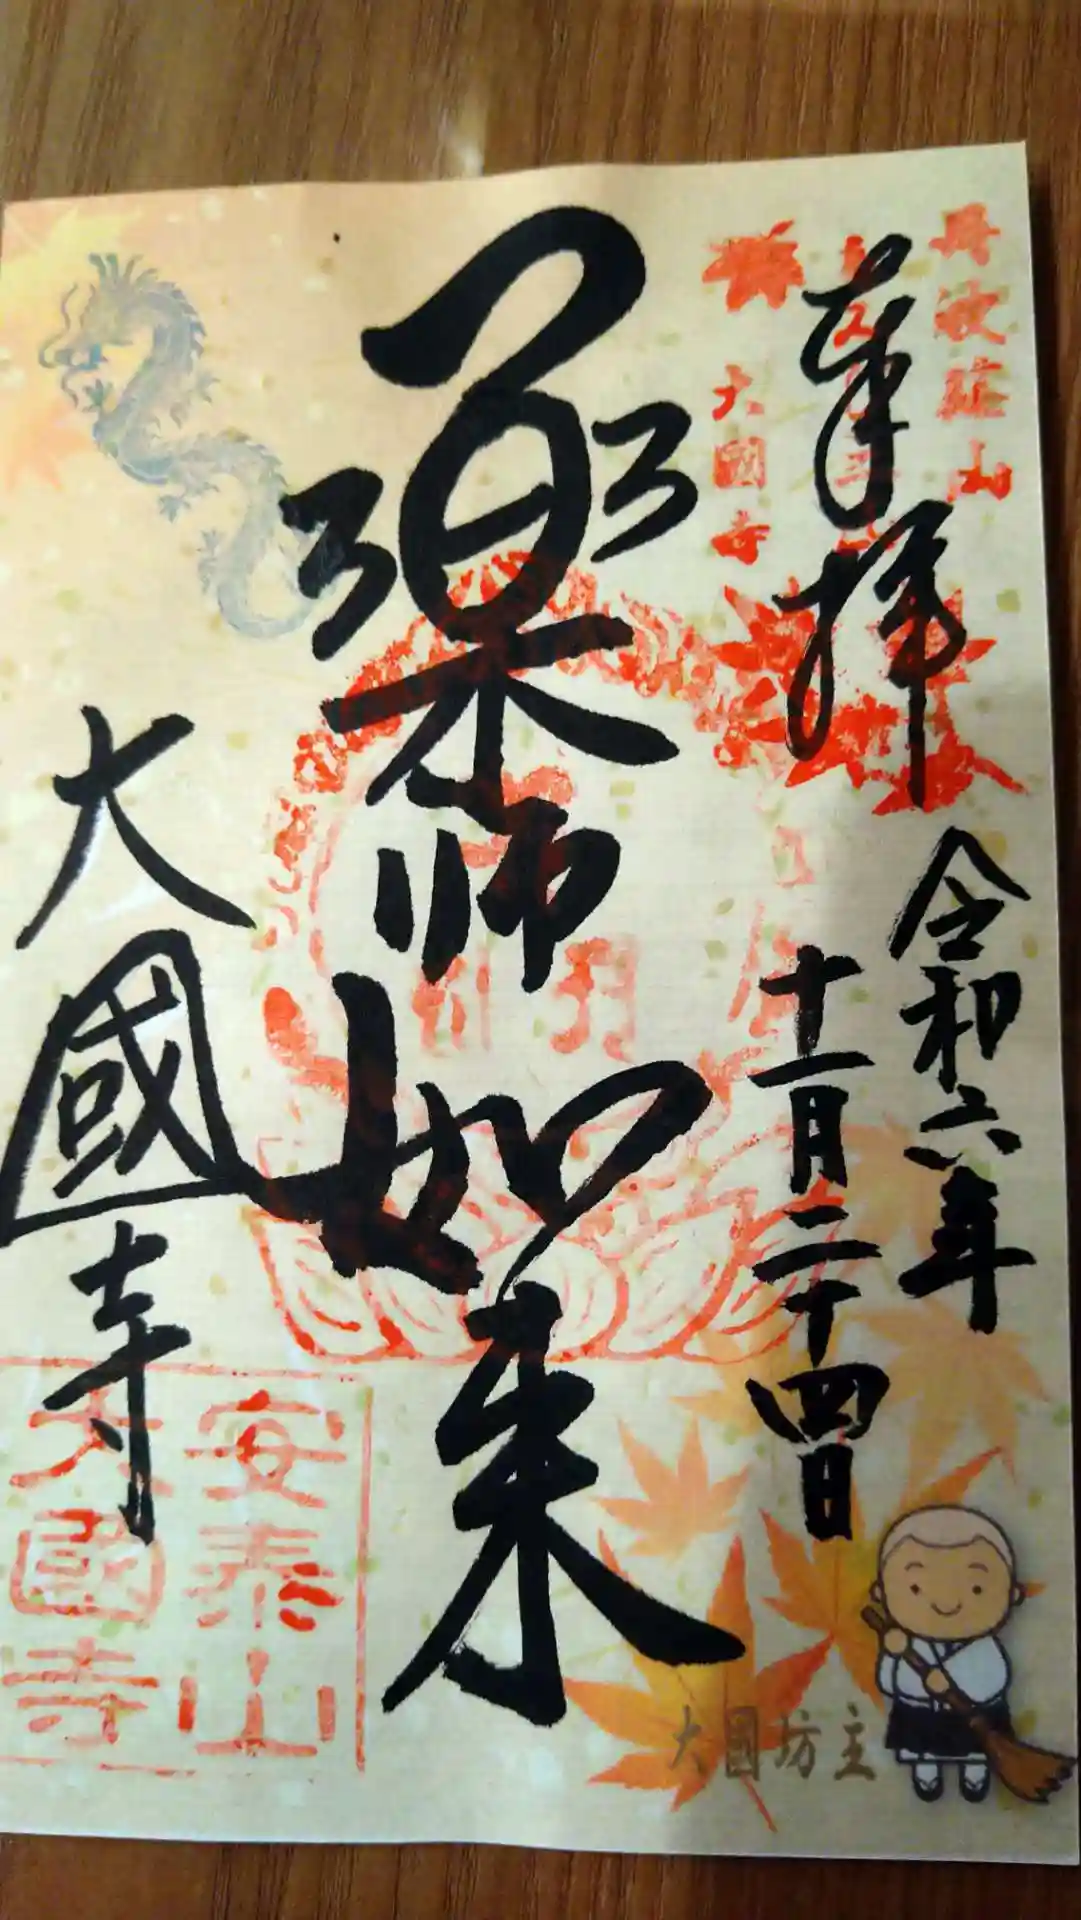 丹波篠山
大國寺
奉拝
令和六年
十一月二十四日
薬師如来
大國寺
安泰山
大國寺
大國坊主